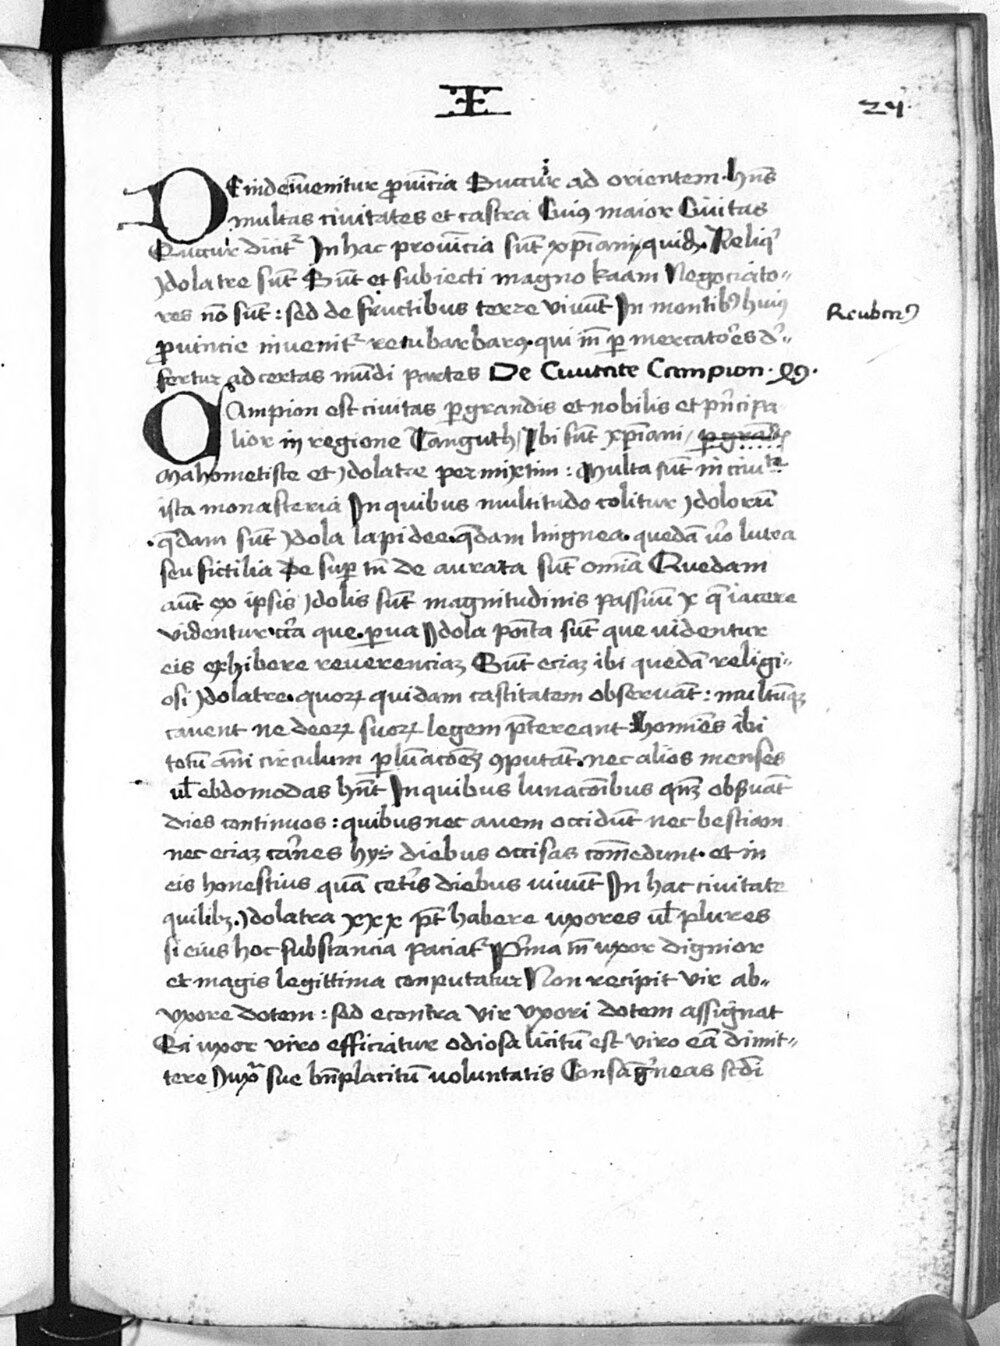 E
24
DEinde īvenitur ꝓvīcia Succuir ad orientem · hn̄s
multas civitates et castra Cuiꝰ maior Civitas
Succuir dicitr̄ In hac provīcia sūt xp̄iani quidā Reliqͥ
ydolatre sūt Sūt et subiecti magno kaam Negociato-
res nō sūt : sed de fructibus terre vivūt In montibꝰ huiꝰ
Reubarbꝰ
ꝓvincie invenitr̄ reubarbarꝰ qui īn ꝑ mercatores d'-
fertur ad certas mūdi partes De Civitate Campion ·
CAmpion est civitas ꝑgrandis et nobilis et pn̄cipa
lior in regione Tanguth Ibi sūt xp̄iani
Mahometiste et ydolatre permixtim : Multa sūt in civite
ista monasteria In quibus multitudo colitur ydolorū
· q̄dam sūt ydola lapidee · q̄dam lingnea · quedam v̄o lutea
seu fictilia De suꝑ tn̄ de aurata sūt omīa Quedam
aūt ex ipsis ydolis sūt magnitudinis passuū x q̄ iacere
videntur cc̄a que · ꝑva ydola po̅ita sūt que videntur
eis exhibere reverenciaꝫ Sūt eciaꝫ ibi quedā religi-
osi ydolatre · quoꝝ quidam castitatem observāt : multūqꝫ
cavent ne deoꝝ suoꝝ legem p̄tereant Homīes ibi
totū āni circulum ꝑ lūacoēs ꝯputāt · nec alios menses
ul̄ ebdomodas hn̄t In quibus lunacōibus qn̄ꝫ obs̄vāt
dies continuos : quibus nec avem occidūt nec bestiam
nec eciaꝫ carnes hys diebus occisas comedunt · et in
eis honestius quā ceteris diebus vivūt In hac civitate
quilibꝫ · ydolatra xxx p̄t habere uxores ul̄ plures
si eius hoc substancia paciatr̄ Pͥma tn̄ uxor dignior
et magis legittima conputatur Non recipit vir ab-
uxore dotem : sed econtra vir uxori dotem assignat
Si uxor viro efficiatur odiosa licitū est viro eā dimit-
tere Iuxa sue bn̄placitū voluntatis Consāguineas sc̄di